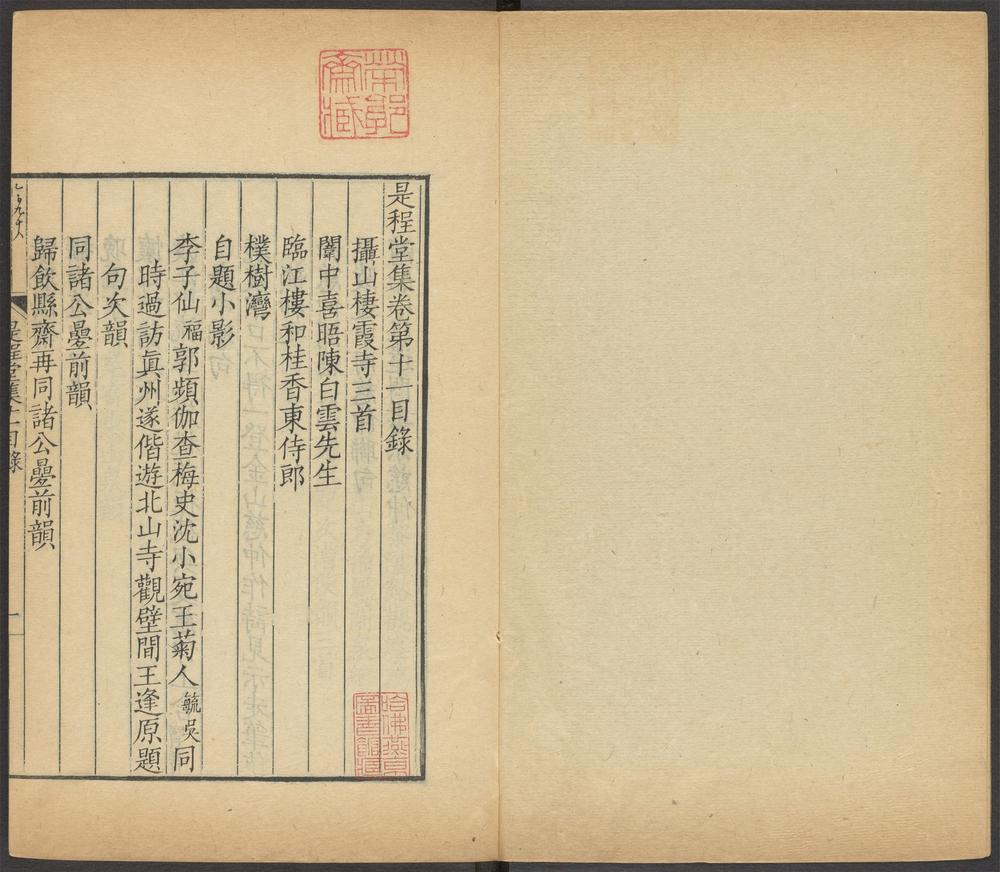 是程堂集卷第十一目錄
攝山棲霞寺三首
闈中喜晤陳白雲先生
臨江樓和桂香東侍郎
樸樹灣
自題小影
李子仙福郭頻伽查梅史沈小宛王菊人毓吳同
時過訪真州遂偕遊北山寺觀壁間王逢原題
句次韻
同諸公疊前韻
歸飲縣齋再同諸公疊前韻
是程堂集十一目錄
一
哈佛燕京
圖書館